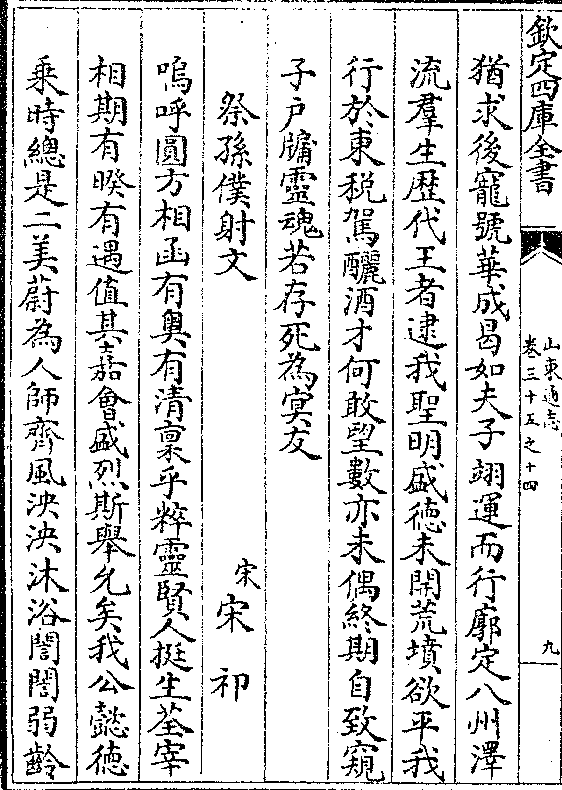 欽定四庫全書
山東通志
卷三十五之十四
九
猶求後寵號華成曷如夫子翊運而行廓定八州澤
流羣生歴代王者逮我聖明盛徳未開荒墳欲平我
行於東税駕釃酒才何敢望數亦未偶終期自致窺
子戸牖靈魂若存死為㝠友
祭孫僕射文
宋宋祁
嗚呼圓方相函有輿有清禀乎粹靈賢人挺生荃宰
相期有暌有遇值其嘉會盛烈斯舉允矣我公懿徳
乘時總是二美蔚為人師齊風泱泱沐浴誾誾弱齡